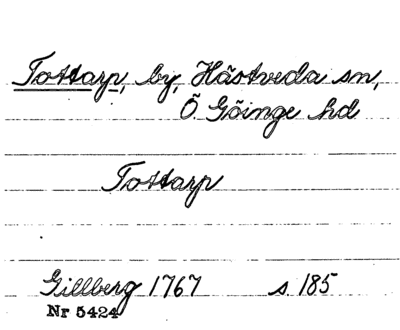 Tottarp, by, Hästveda sn,
Ö. Göinge hd
Tottarp
Gillberg 1767 s. 185
Nr 5424